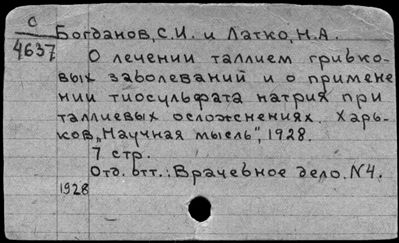 С
4637
Богданов, С.И. и Латко, Н.А.
О лечении таллием грибко-
вых заболеваний и о примене
нии тиосульфата натрия при
таллиевых осложнениях. Харь-
ков, „Научная мысль", 1928.
7 стр.
Отд. отт.: Врачебное дело. N4.
1928